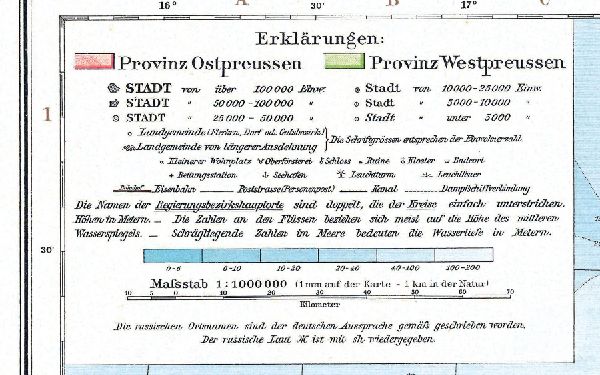 A
B
C
16°
30'
17°
1
30'
Erklärungen:
Provinz Ostpreussen Provinz Westpreussen
STADT von über 100000 Einw. Stadt von 10000-25000 Einw.
STADT " 50000-100000 " Stadt " 5000-10000 "
STADT " 25000-50000 " Stadt " unter 5000 "
Landgemeinde (Flecken, Dorf od. Gutsbezirk)
Landgemeinde von längerer Ausdehnung
Die Schriftgrössen entsprechen der Einwohnerzahl
Kleinerer Wohnplatz Oberförsterei Schloss Ruine Kloster Badeort
Rettungsstation Seehafen Leuchtturm Leuchtfeuer
Eisenbahn Poststrasse (Personenpost) Kanal Dampfschiffverbindung
Die Namen der Regierungsbezirkshauptorte sind doppelt, die der Kreise einfach unterstrichen.
Höhen in Metern. — Die Zahlen an den Flüssen beziehen sich meist auf die Höhe des mittleren
Wasserspiegels. — Schrägliegende Zahlen im Meere bedeuten die Wassertiefe in Metern.
0-5 5-10 10-20 20-40 40-100 100-200
Maßstab 1:1000000 (1 mm auf der Karte - 1 km in der Natur)
10 5 0 10 20 30 40 50 60 70
Kilometer
Die russischen Ortsnamen sind der deutschen Aussprache gemäß geschrieben worden.
Der russische Laut Ж ist mit sh wiedergegeben.